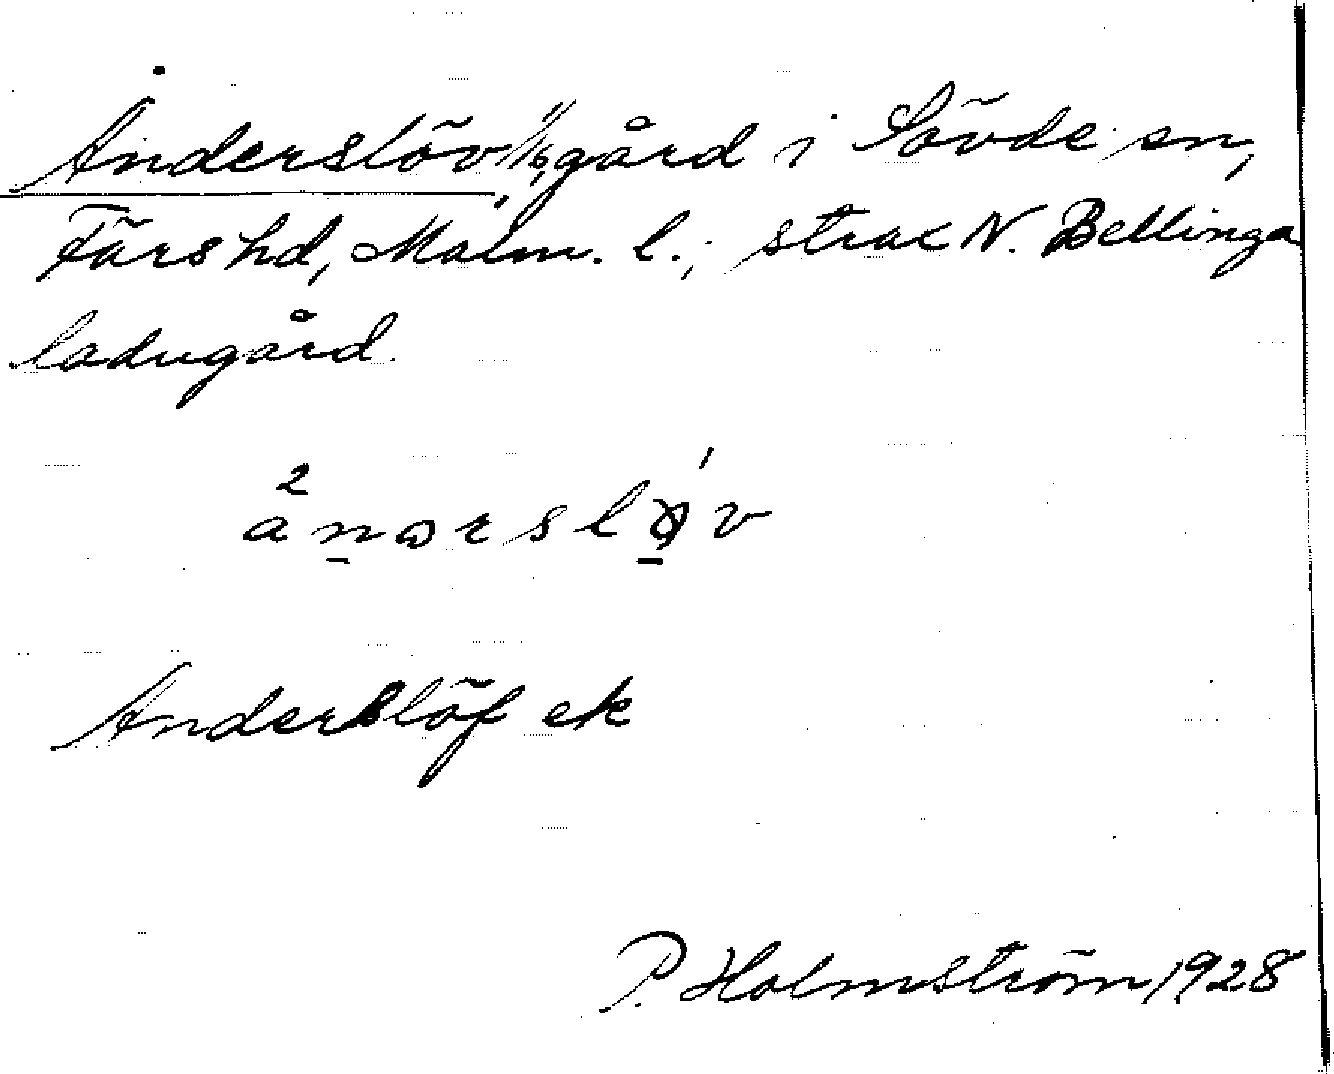 Anderslöv, gård i Sövde sn,
Färs hd, Malm. l.; strax N. Bellinga
ladugård
Anderslöf ek
P. Holmström 1928